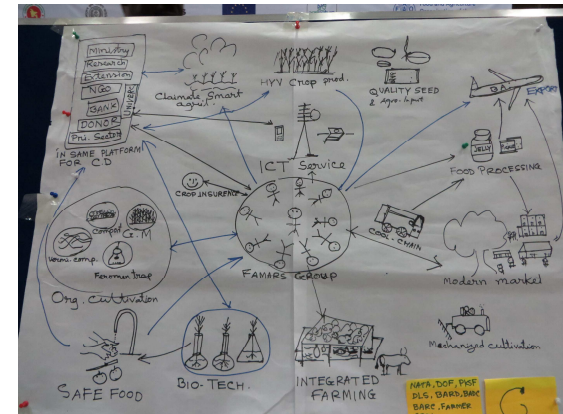 Ministry
Research
Extension
NGO
BANK
DONOR
Pri. Sector
UNIVERC
IN SAME PLATFORM
FOR CD
Claimate Smart
agricul.
HYV Crop prod.
QUALITY SEED
& agro. Input
BA
EXPORT
ICT Service
JELLY
FOOD PROCESSING
CROP INSURENCE
COOL-CHAIN
Compost
G.M
Vermi. comp.
Feromon trap
Org. Cultivation
FAMARS GROUP
Modern market
Mechanized cultivation
SAFE FOOD
BIO-TECH.
INTEGRATED
FARMING
NATA, DOF, PKSF
DLS, BARD, BADC
BARC, FARMER